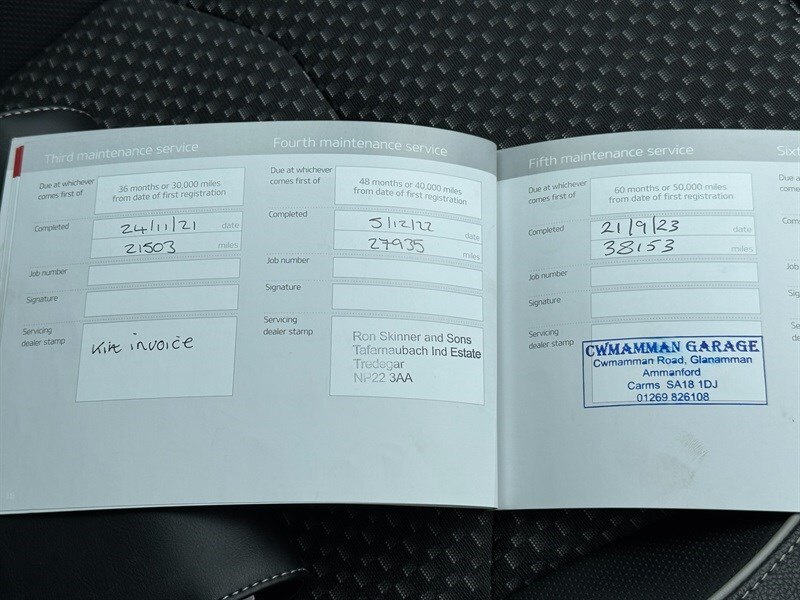 Third maintenance service
Due at whichever
comes first of
36 months or 30,000 miles
from date of first registration
Completed
24/11/21 date
21503 miles
Job number
Signature
Servicing
dealer stamp
invoice
Fourth maintenance service
Due at whichever
comes first of
48 months or 40,000 miles
from date of first registration
Completed
5/12/22 date
27935 miles
Job number
Signature
Servicing
dealer stamp
Ron Skinner and Sons
Tafarnaubach Ind Estate
Tredegar
NP22 3AA
Fifth maintenance service
Due at whichever
comes first of
60 months or 50,000 miles
from date of first registration
Completed
21/9/23 date
38153 miles
Job number
Signature
Servicing
dealer stamp
CWMAMMAN GARAGE
Cwmamman Road, Glanamman
Ammanford
Carms SA18 1DJ
01269 826108
Sixt
Due a
comes
Comple
Job nu
Signat
Servic
dealer